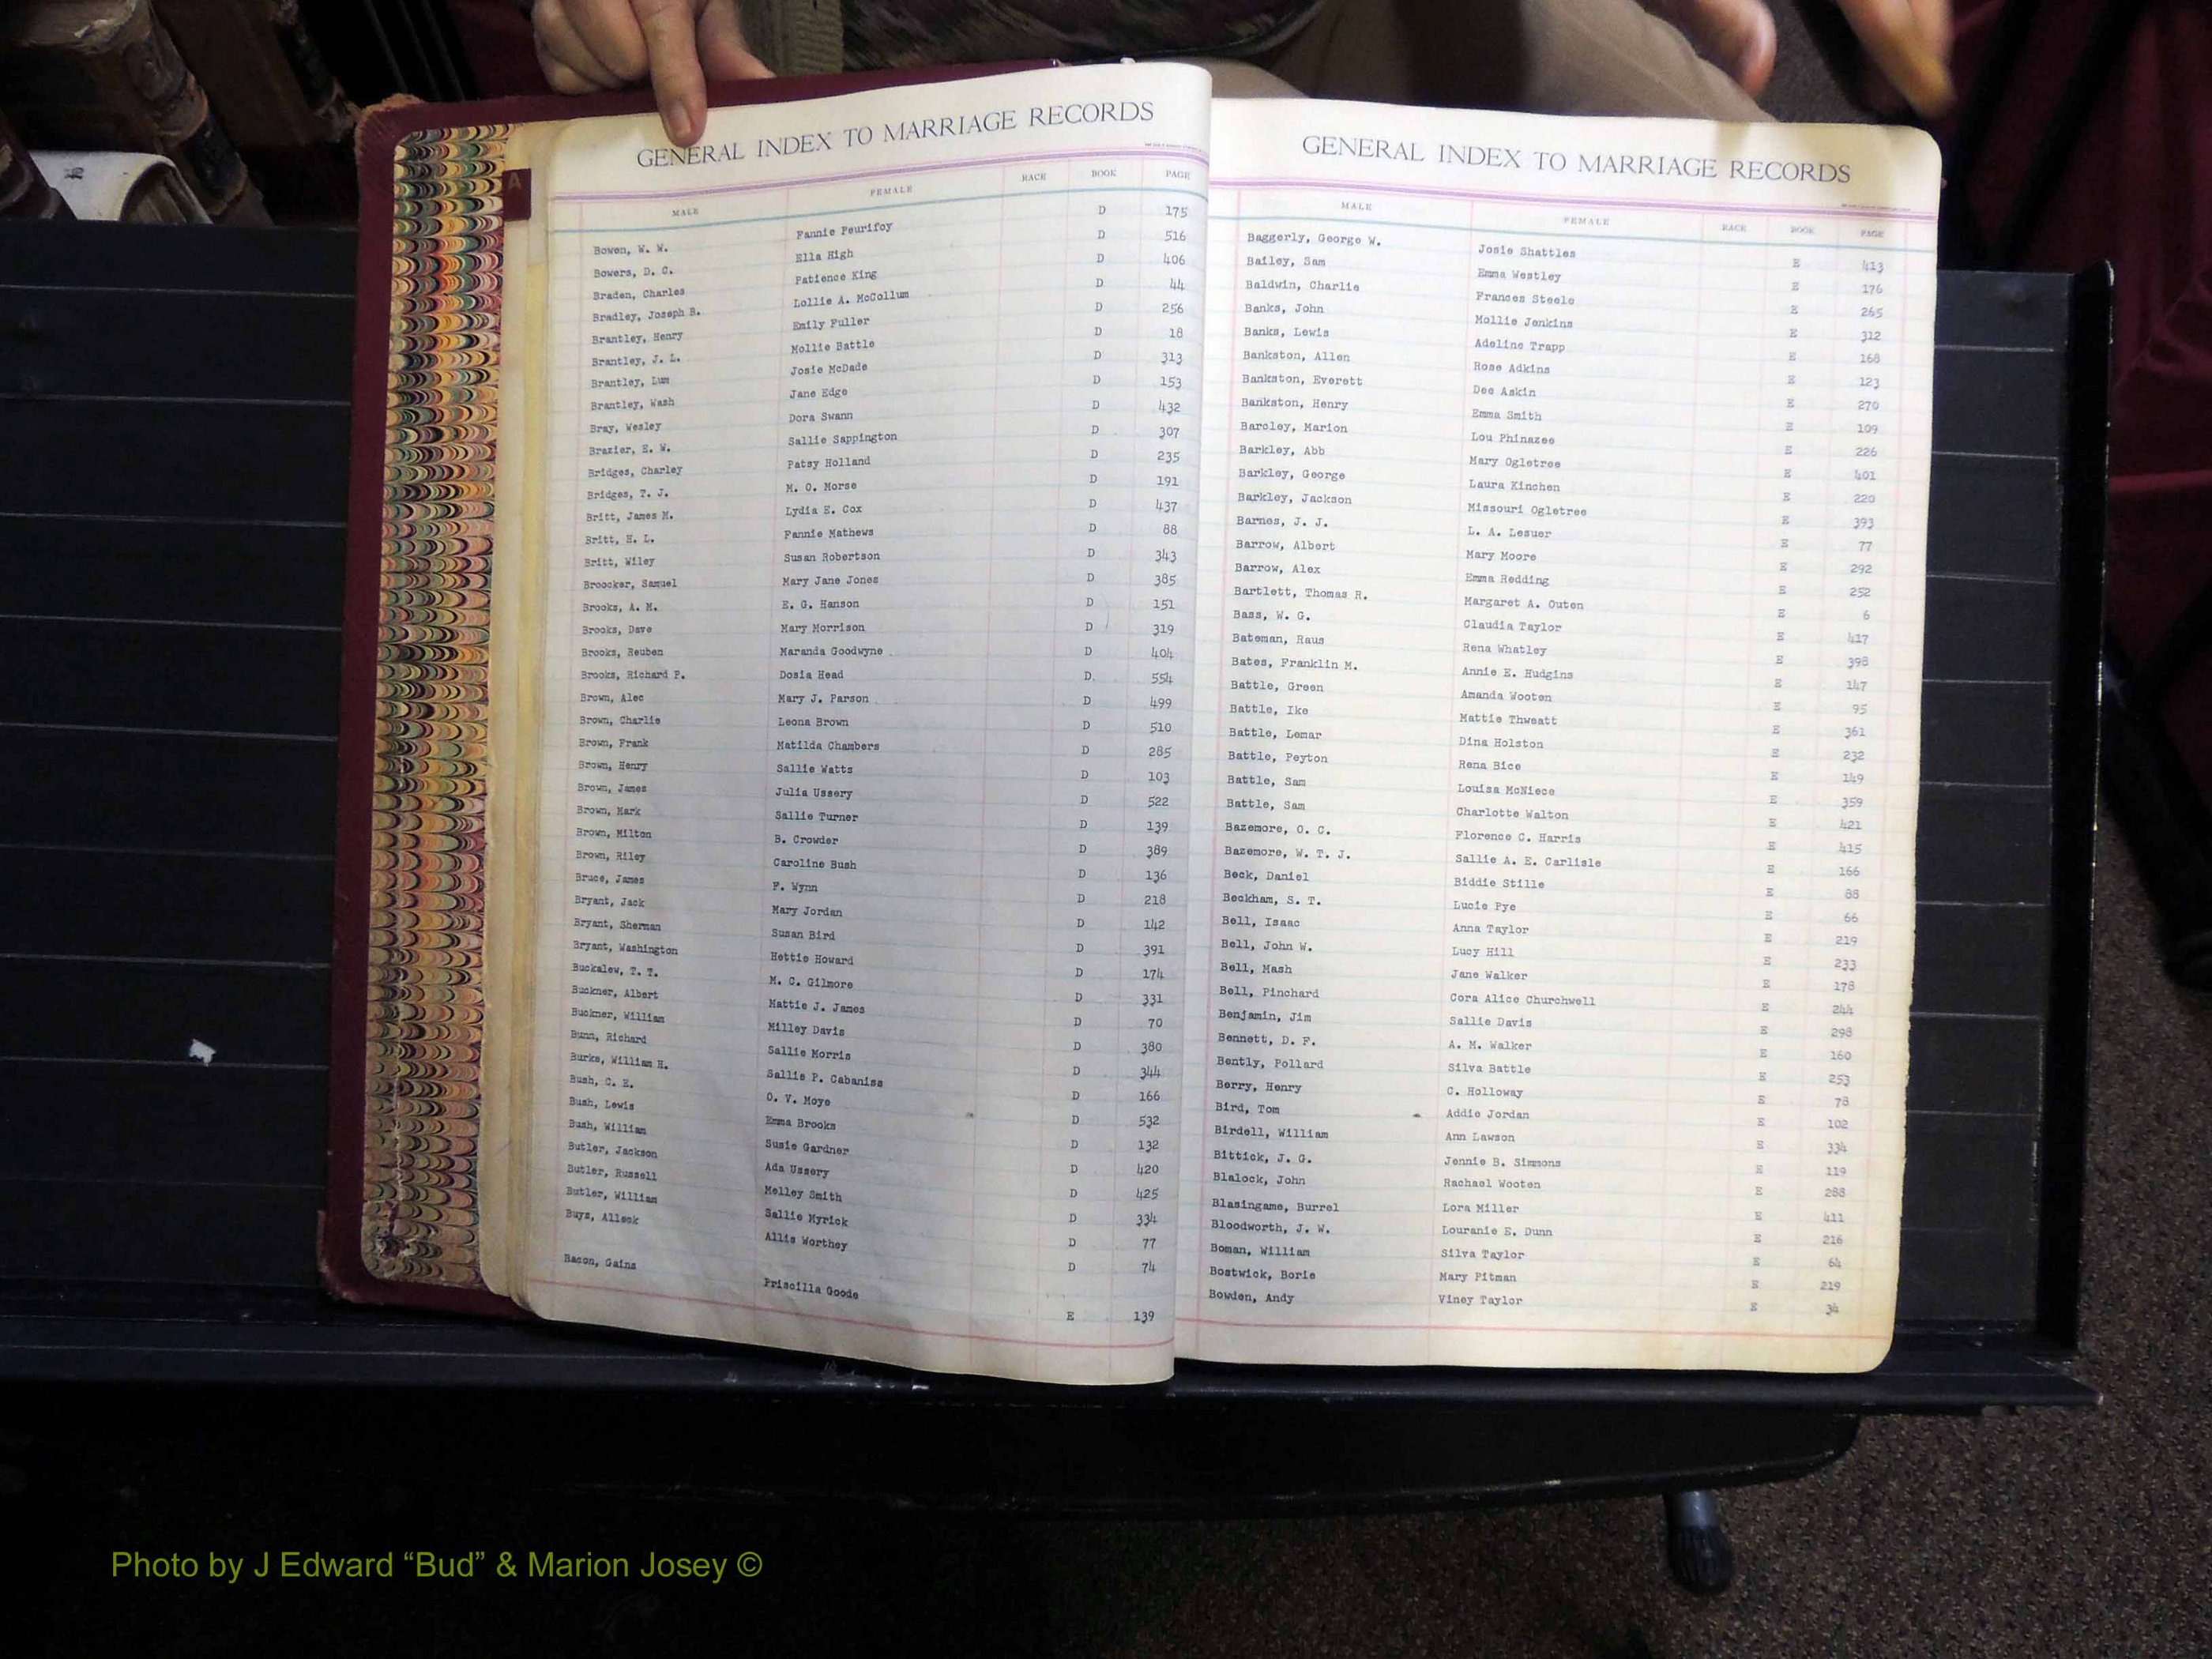 GENERAL INDEX TO MARRIAGE RECORDS
MALE FEMALE RACE BOOK PAGE
Bowen, W. W. Fannie Peurifoy D 175
Bowers, D. C. Ella High D 516
Braden, Charles Patience King D 406
Bradley, Joseph B. Lollie A. McCollum D 44
Brantley, Henry Emily Fuller D 256
Brantley, J. L. Mollie Battle D 18
Brantley, Lum Josie McDade D 313
Brantley, Wash Jane Edge D 153
Bray, Wesley Dora Swann D 432
Brazier, E. W. Sallie Sappington D 307
Bridges, Charley Patsy Holland D 235
Bridges, T. J. M. O. Morse D 191
Britt, James M. Lydia E. Cox D 437
Britt, H. L. Fannie Mathews D 88
Britt, Wiley Susan Robertson D 343
Broocker, Samuel Mary Jane Jones D 385
Brooks, A. M. E. G. Hanson D 151
Brooks, Dave Mary Morrison D 319
Brooks, Reuben Maranda Goodwyne D 404
Brooks, Richard P. Dosia Head D. 554
Brown, Alec Mary J. Parson D 499
Brown, Charlie Leona Brown D 510
Brown, Frank Matilda Chambers D 285
Brown, Henry Sallie Watts D 103
Brown, James Julia Ussery D 522
Brown, Mark Sallie Turner D 139
Brown, Milton B. Crowder D 389
Brown, Riley Caroline Bush D 136
Bruce, James F. Wynn D 218
Bryant, Jack Mary Jordan D 142
Bryant, Sherman Susan Bird D 391
Bryant, Washington Hettie Howard D 174
Buckalew, T. T. M. C. Gilmore D 331
Buckner, Albert Mattie J. James D 70
Buckner, William Milley Davis D 380
Bunn, Richard Sallie Morris D 344
Burke, William H. Sallie P. Cabaniss D 166
Bush, C. E. O. V. Moye D 532
Bush, Lewis Emma Brooks D 132
Bush, William Susie Gardner D 420
Butler, Jackson Ada Ussery D 425
Butler, Russell Melley Smith D 334
Butler, William Sallie Myrick D 77
Buys, Alleck Allie Worthey D 74
Bacon, Gains Priscilla Goode E 139
GENERAL INDEX TO MARRIAGE RECORDS
MALE FEMALE RACE BOOK PAGE
Baggerly, George W. Josie Shattles E 413
Bailey, Sam Emma Westley E 176
Baldwin, Charlie Frances Steele E 265
Banks, John Mollie Jenkins E 312
Banks, Lewis Adeline Trapp E 168
Bankston, Allen Rose Adkins E 123
Bankston, Everett Dee Askin E 270
Bankston, Henry Emma Smith E 109
Barcley, Marion Lou Phinazee E 226
Barkley, Abb Mary Ogletree E 401
Barkley, George Laura Kinchen E 220
Barkley, Jackson Missouri Ogletree E 393
Barnes, J. J. L. A. Lesuer E 77
Barrow, Albert Mary Moore E 292
Barrow, Alex Emma Redding E 252
Bartlett, Thomas R. Margaret A. Outen E 6
Bass, W. G. Claudia Taylor E 417
Bateman, Raus Rena Whatley E 398
Bates, Franklin M. Annie E. Hudgins E 147
Battle, Green Amanda Wooten E 95
Battle, Ike Mattie Thweatt E 361
Battle, Lomar Dina Holston E 232
Battle, Peyton Rena Bice E 149
Battle, Sam Louisa McNiece E 359
Battle, Sam Charlotte Walton E 421
Bazemore, O. C. Florence C. Harris E 415
Bazemore, W. T. J. Sallie A. E. Carlisle E 166
Beck, Daniel Biddie Stille E 88
Beckham, S. T. Lucie Pye E 66
Bell, Isaac Anna Taylor E 219
Bell, John W. Lucy Hill E 233
Bell, Mash Jane Walker E 178
Bell, Pinchard Cora Alice Churchwell E 244
Benjamin, Jim Sallie Davis E 298
Bennett, D. F. A. M. Walker E 160
Bently, Pollard Silva Battle E 253
Berry, Henry C. Holloway E 78
Bird, Tom Addie Jordan E 102
Birdell, William Ann Lawson E 334
Bittick, J. G. Jennie B. Simmons E 119
Blalock, John Rachael Wooten E 288
Blasingame, Burrel Lora Miller E 411
Bloodworth, J. W. Louranie E. Dunn E 216
Boman, William Silva Taylor E 64
Bostwick, Borie Mary Pitman E 219
Bowden, Andy Viney Taylor E 34
Photo by J Edward “Bud” & Marion Josey ©